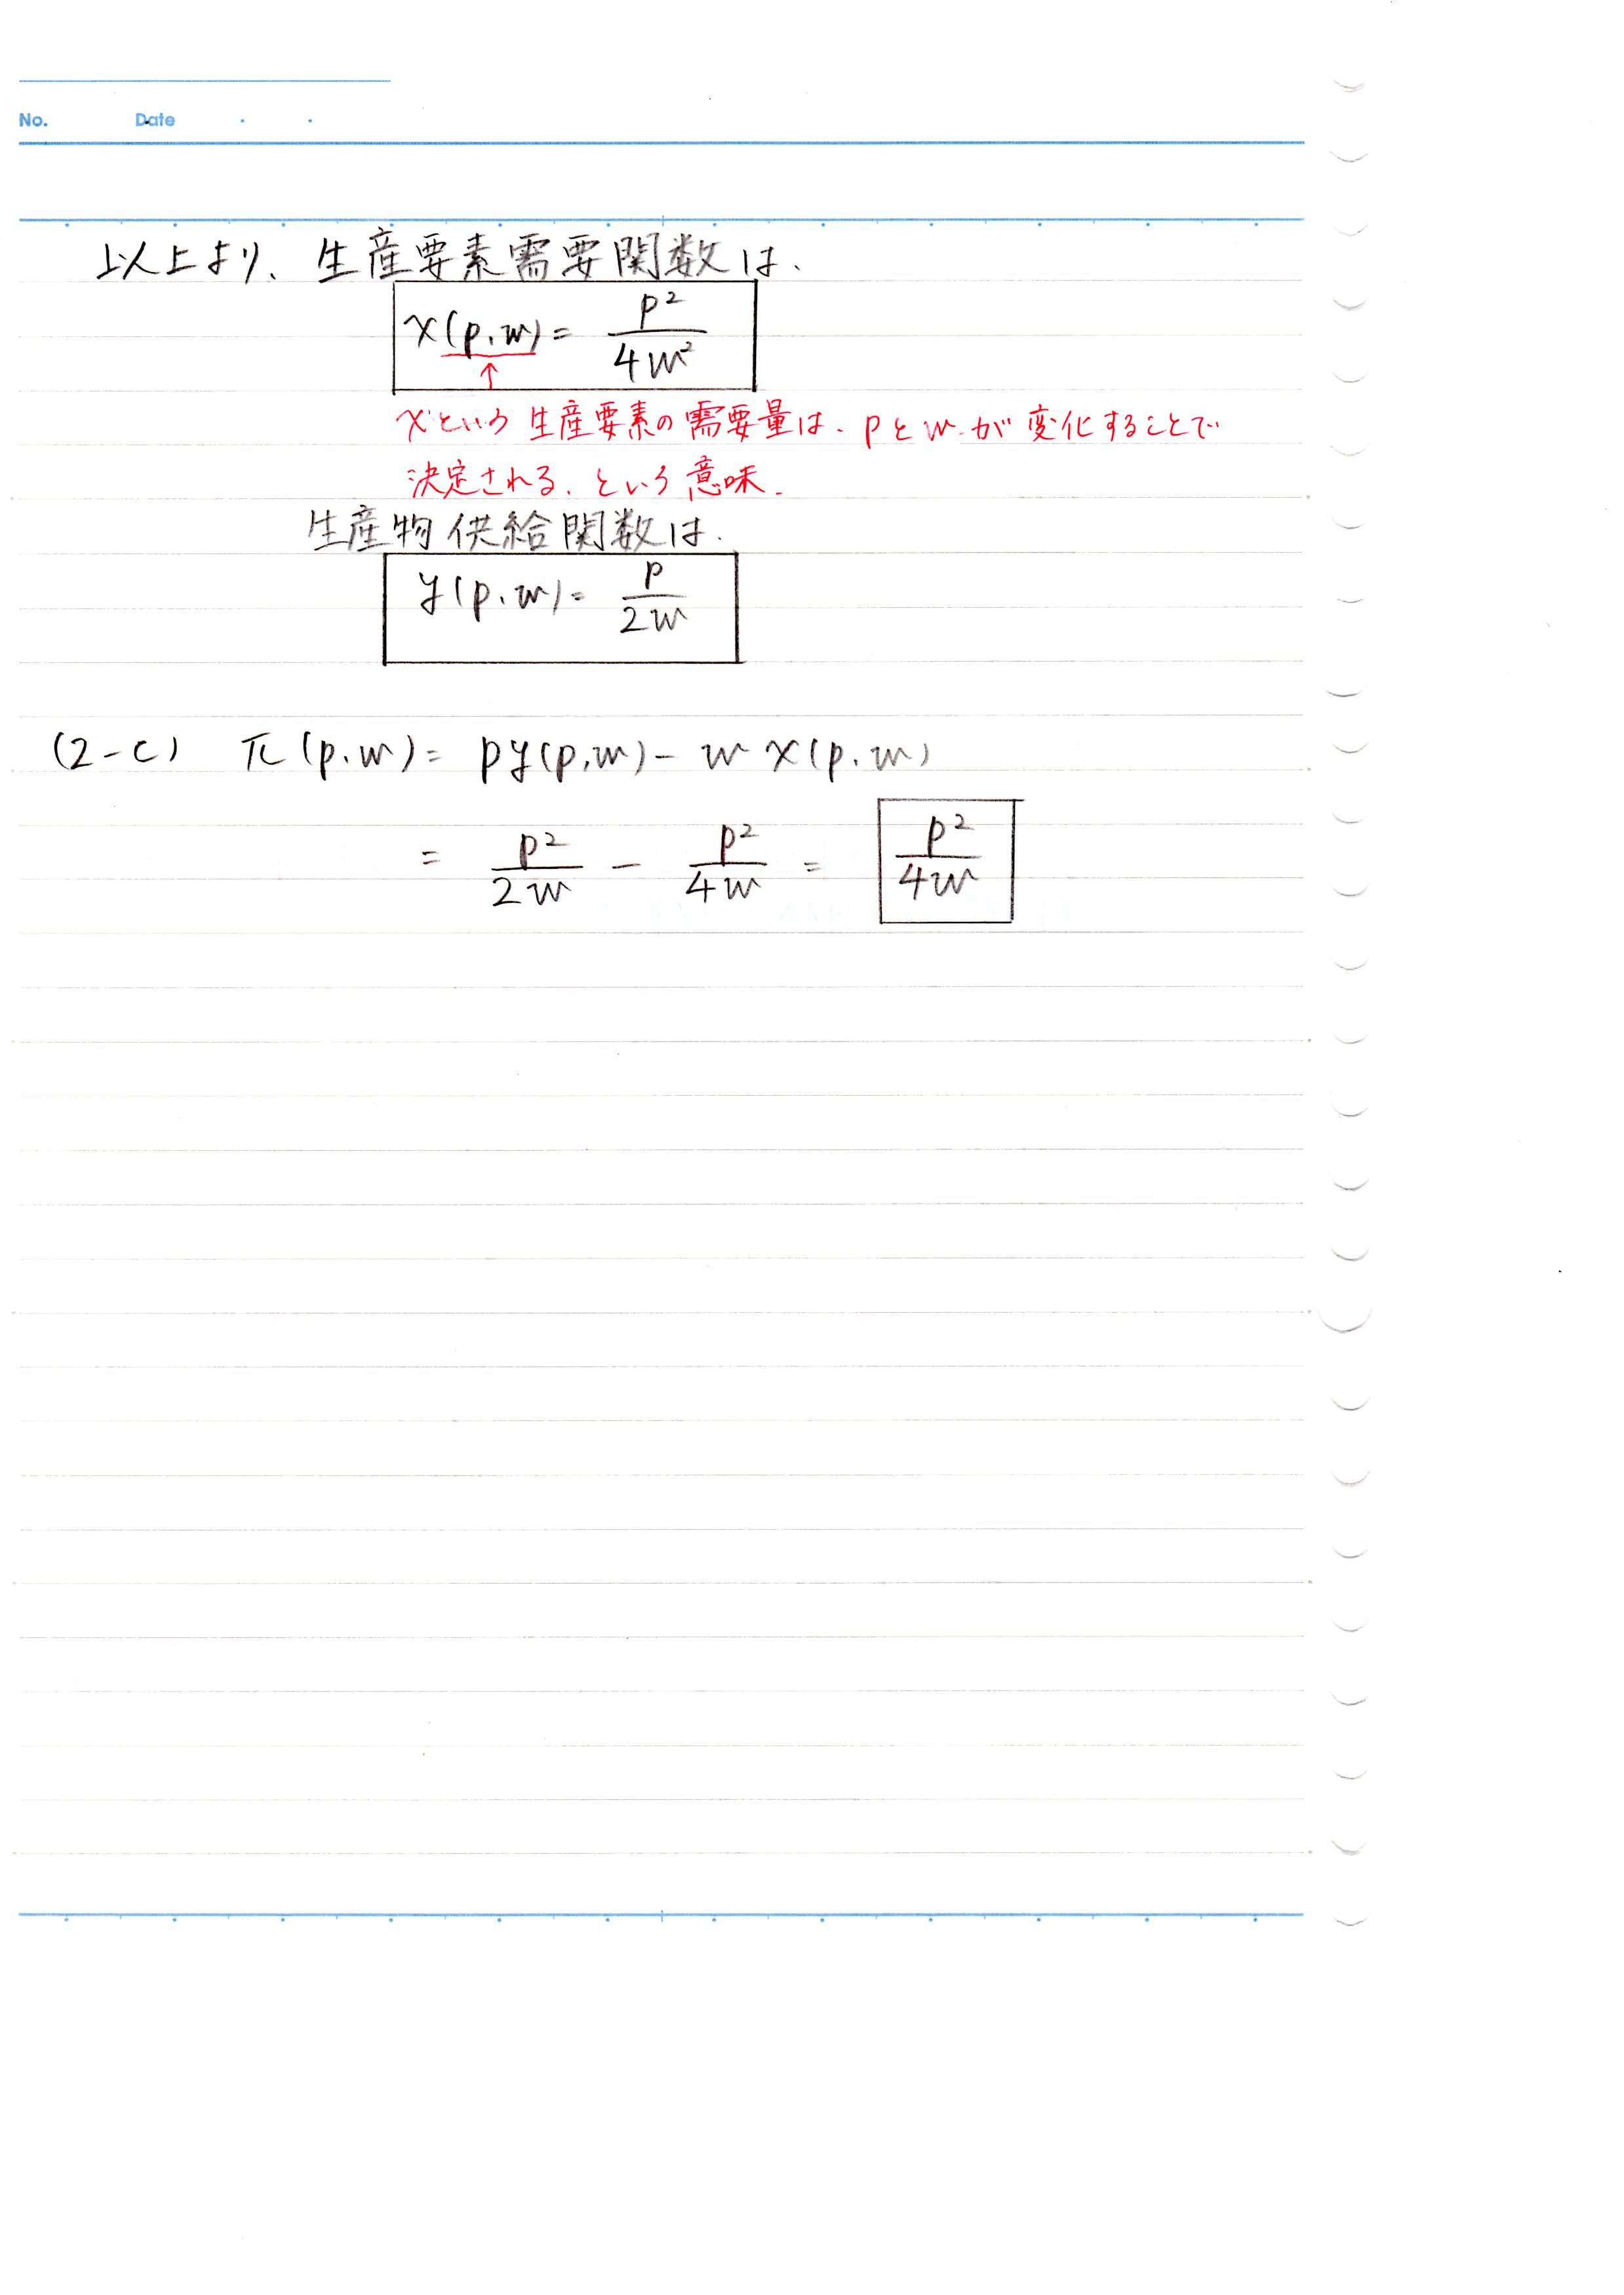 No. Date
以上より、生産要素需要関数は、
x(p,w) = p²/4w²
↑
xという生産要素の需要量は、pとwが変化することで
決定される、という意味.
生産物供給関数は、
y(p,w) = p/2w
(2-c) π(p,w) = py(p,w) - wx(p,w)
= p²/2w - p²/4w = p²/4w